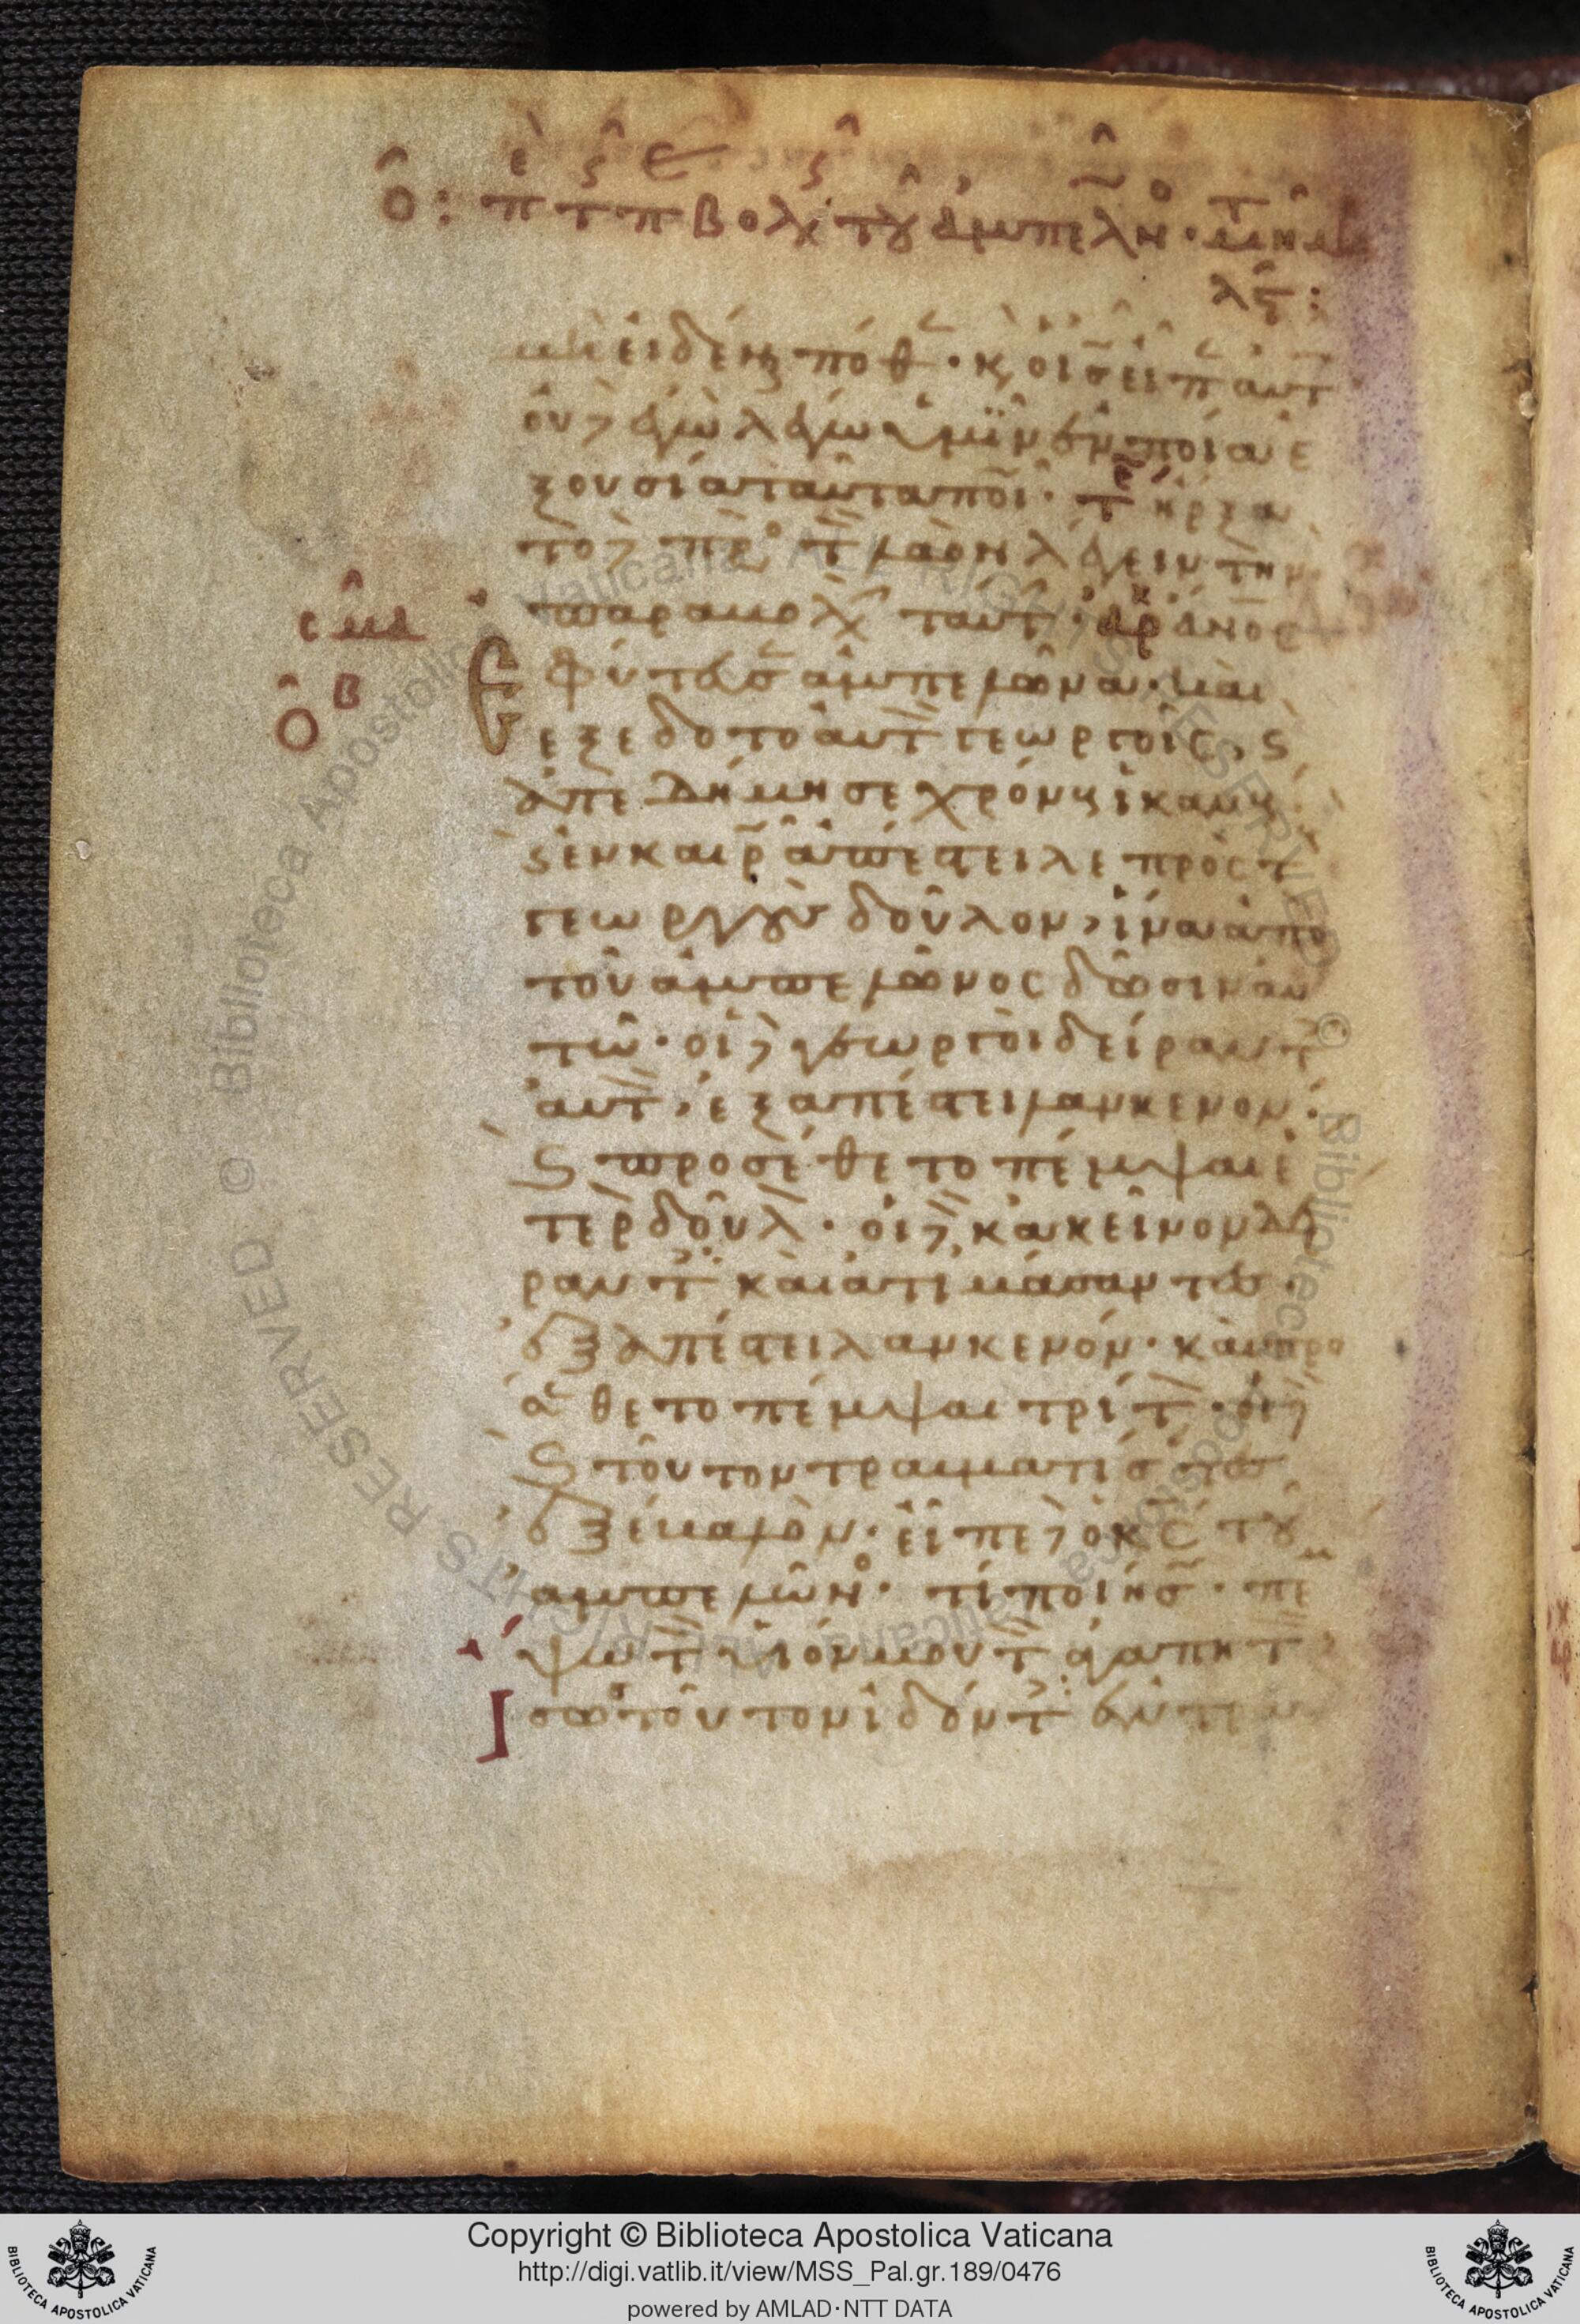 ο: περὶ τῆς παραβολῆς τοῦ ἀμπελῶνος
μὴ εἰδέναι πόθεν· κ, ὁ ις εἶπεν αὐτ
οὐδὲ ἐγὼ λέγω ὑμῖν ἐν ποία ἐ
ξουσία ταῦτα ποιῶ· τέλ ἤρξα
το δὲ πρὸς τὸν λαὸν λέγειν τὴν
παραβολὴν ταύτ· ἀρχ ἄνος
Ἐφύτευσεν ἀμπελῶνα· καὶ
ἐξέδοτο αὐτὸν γεωργοῖς, ϛ
ἀπεδήμησε χρόνους ἱκανούς
ϛ ἐν καιρῶ ἀπέστειλε πρὸς τ
γεωργοὺς δοῦλον, ἵνα ἀπὸ
τοῦ ἀμπελῶνος δῶσιν αὐ
τῶ· οἱ δὲ γεωργοὶ δείραντ
αὐτὸν, ἐξαπέστειλαν κενόν·
ϛ προσέθετο πέμψαι ἕ
τερον δοῦλον· οἱ δὲ κἀκεῖνον δεί
ραντες καὶ ἀτιμάσαντες
ἐξαπέστειλαν κενόν· καὶ προ
σέθετο πέμψαι τρίτον· οἱ δὲ
ϛ τοῦτον τραυματίσαντες
ἐξέβαλον· εἶπε δὲ ὁ κς τοῦ
ἀμπελῶνος· τί ποιήσω· πέμ
ψω τὸν υἱόν μου τὸν ἀγαπητ
Ἴσως τοῦτον ἰδόντες ἐντρ
ο β
Copyright © Biblioteca Apostolica Vaticana
http://digi.vatlib.it/view/MSS_Pal.gr.189/0476
powered by AMLAD·NTT DATA
BIBLIOTECA APOSTOLICA VATICANA
BIBLIOTECA APOSTOLICA VATICANA